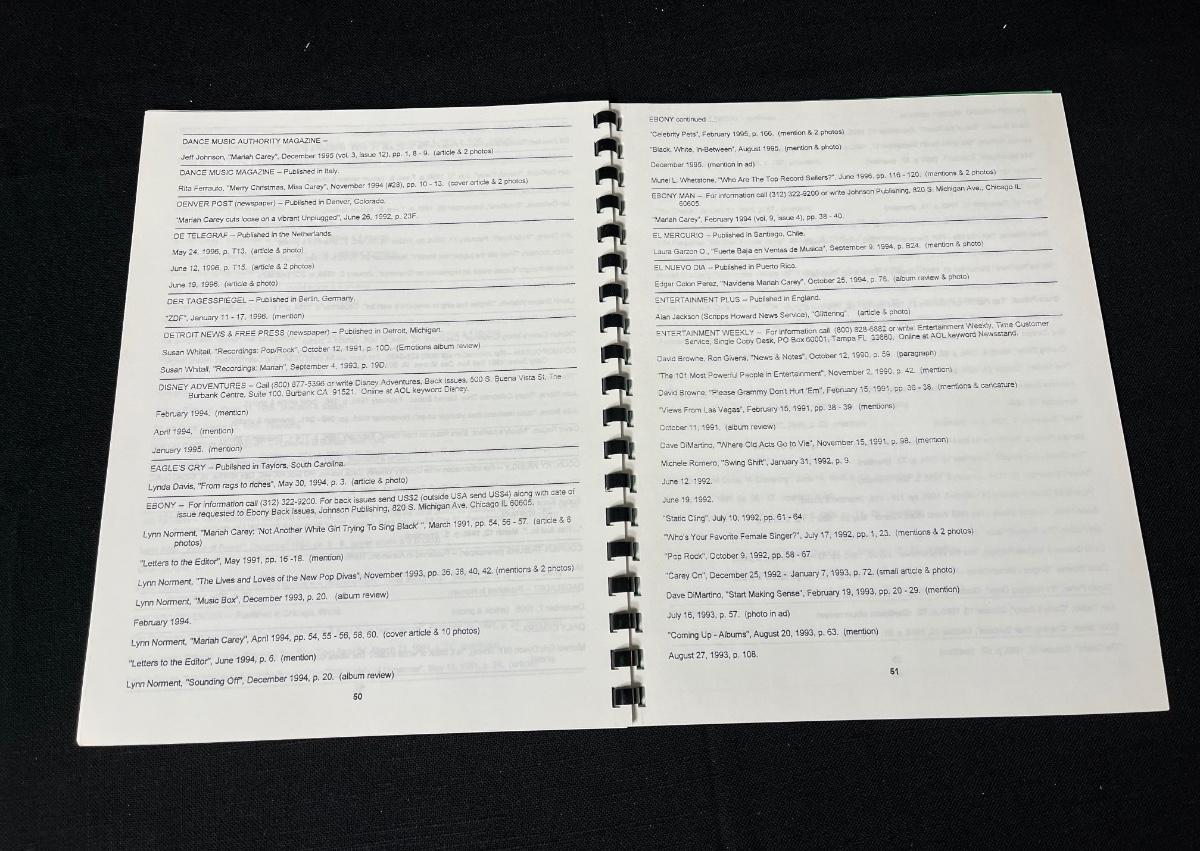 DANCE MUSIC AUTHORITY MAGAZINE –
Jeff Johnson, "Mariah Carey", December 1995 (vol. 3, issue 12), pp. 1, 8 - 9. (article & 2 photos)
DANCE MUSIC MAGAZINE – Published in Italy.
Rita Ferrauto, "Merry Christmas, Miss Carey", November 1994 (#28), pp. 10 - 13. (cover article & 2 photos)
DENVER POST (newspaper) – Published in Denver, Colorado.
"Mariah Carey cuts loose on a vibrant Unplugged", June 26, 1992, p. 23F.
DE TELEGRAF – Published in the Netherlands.
May 24, 1996, p. T13. (article & photo)
June 12, 1996, p. T15. (article & 2 photos)
June 19, 1996. (article & photo)
DER TAGESSPIEGEL – Published in Berlin, Germany.
"ZDF", January 11 - 17, 1996. (mention)
DETROIT NEWS & FREE PRESS (newspaper) – Published in Detroit, Michigan.
Susan Whitall, "Recordings: Pop/Rock", October 12, 1991, p. 10D. (Emotions album review)
Susan Whitall, "Recordings: Mariah", September 4, 1993, p. 19D.
DISNEY ADVENTURES – Call (800) 877-5396 or write Disney Adventures, Back Issues, 500 S. Buena Vista St, The
Burbank Centre, Suite 100, Burbank CA 91521. Online at AOL keyword Disney.
February 1994. (mention)
April 1994. (mention)
January 1995. (mention)
EAGLE'S CRY – Published in Taylors, South Carolina.
Lynda Davis, "From rags to riches", May 30, 1994, p. 3. (article & photo)
EBONY – For information call (312) 322-9200. For back issues send US$2 (outside USA send US$4) along with date of
issue requested to Ebony Back Issues, Johnson Publishing, 820 S. Michigan Ave, Chicago IL 60605.
Lynn Norment, "Mariah Carey: 'Not Another White Girl Trying To Sing Black' ", March 1991, pp. 54, 56 - 57. (article & 6
photos)
"Letters to the Editor", May 1991, pp. 16 -18. (mention)
Lynn Norment, "The Lives and Loves of the New Pop Divas", November 1993, pp. 36, 38, 40, 42. (mentions & 2 photos)
Lynn Norment, "Music Box", December 1993, p. 20. (album review)
February 1994.
Lynn Norment, "Mariah Carey", April 1994, pp. 54, 55 - 56, 58, 60. (cover article & 10 photos)
"Letters to the Editor", June 1994, p. 6. (mention)
Lynn Norment, "Sounding Off", December 1994, p. 20. (album review)
50
EBONY continued
"Celebrity Pets", February 1995, p. 166. (mention & 2 photos)
"Black, White, In-Between", August 1995. (mention & photo)
December 1995. (mention in ad)
Muriel L. Whetstone, "Who Are The Top Record Sellers?", June 1996, pp. 116 - 120. (mentions & 2 photos)
EBONY MAN – For information call (312) 322-9200 or write Johnson Publishing, 820 S. Michigan Ave., Chicago IL
60605.
"Mariah Carey", February 1994 (vol. 9, issue 4), pp. 38 - 40.
EL MERCURIO – Published in Santiago, Chile.
Laura Garzon O., "Fuerte Baja en Ventas de Musica", September 9, 1994, p. B24. (mention & photo)
EL NUEVO DIA – Published in Puerto Rico.
Edgar Colon Perez, "Navidena Mariah Carey", October 25, 1994, p. 76. (album review & photo)
ENTERTAINMENT PLUS – Published in England.
Alan Jackson (Scripps Howard News Service), "Glittering". (article & photo)
ENTERTAINMENT WEEKLY – For information call (800) 828-6882 or write: Entertainment Weekly, Time Customer
Service, Single Copy Desk, PO Box 60001, Tampa FL 33660. Online at AOL keyword Newsstand.
David Browne, Ron Givens, "News & Notes", October 12, 1990, p. 59. (paragraph)
"The 101 Most Powerful People in Entertainment", November 2, 1990, p. 42. (mention)
David Browne, "Please Grammy Don't Hurt 'Em", February 15, 1991, pp. 36 - 38. (mentions & caricature)
"Views From Las Vegas", February 15, 1991, pp. 38 - 39. (mentions)
October 11, 1991. (album review)
Dave DiMartino, "Where Old Acts Go to Vie", November 15, 1991, p. 98. (mention)
Michele Romero, "Swing Shift", January 31, 1992, p. 9.
June 12, 1992.
June 19, 1992.
"Static Cling", July 10, 1992, pp. 61 - 64.
"Who's Your Favorite Female Singer?", July 17, 1992, pp. 1, 23. (mentions & 2 photos)
"Pop Rock", October 9, 1992, pp. 58 - 67.
"Carey On", December 25, 1992 - January 7, 1993, p. 72. (small article & photo)
Dave DiMartino, "Start Making Sense", February 19, 1993, pp. 20 - 29. (mention)
July 16, 1993, p. 57. (photo in ad)
"Coming Up - Albums", August 20, 1993, p. 63. (mention)
August 27, 1993, p. 108.
51